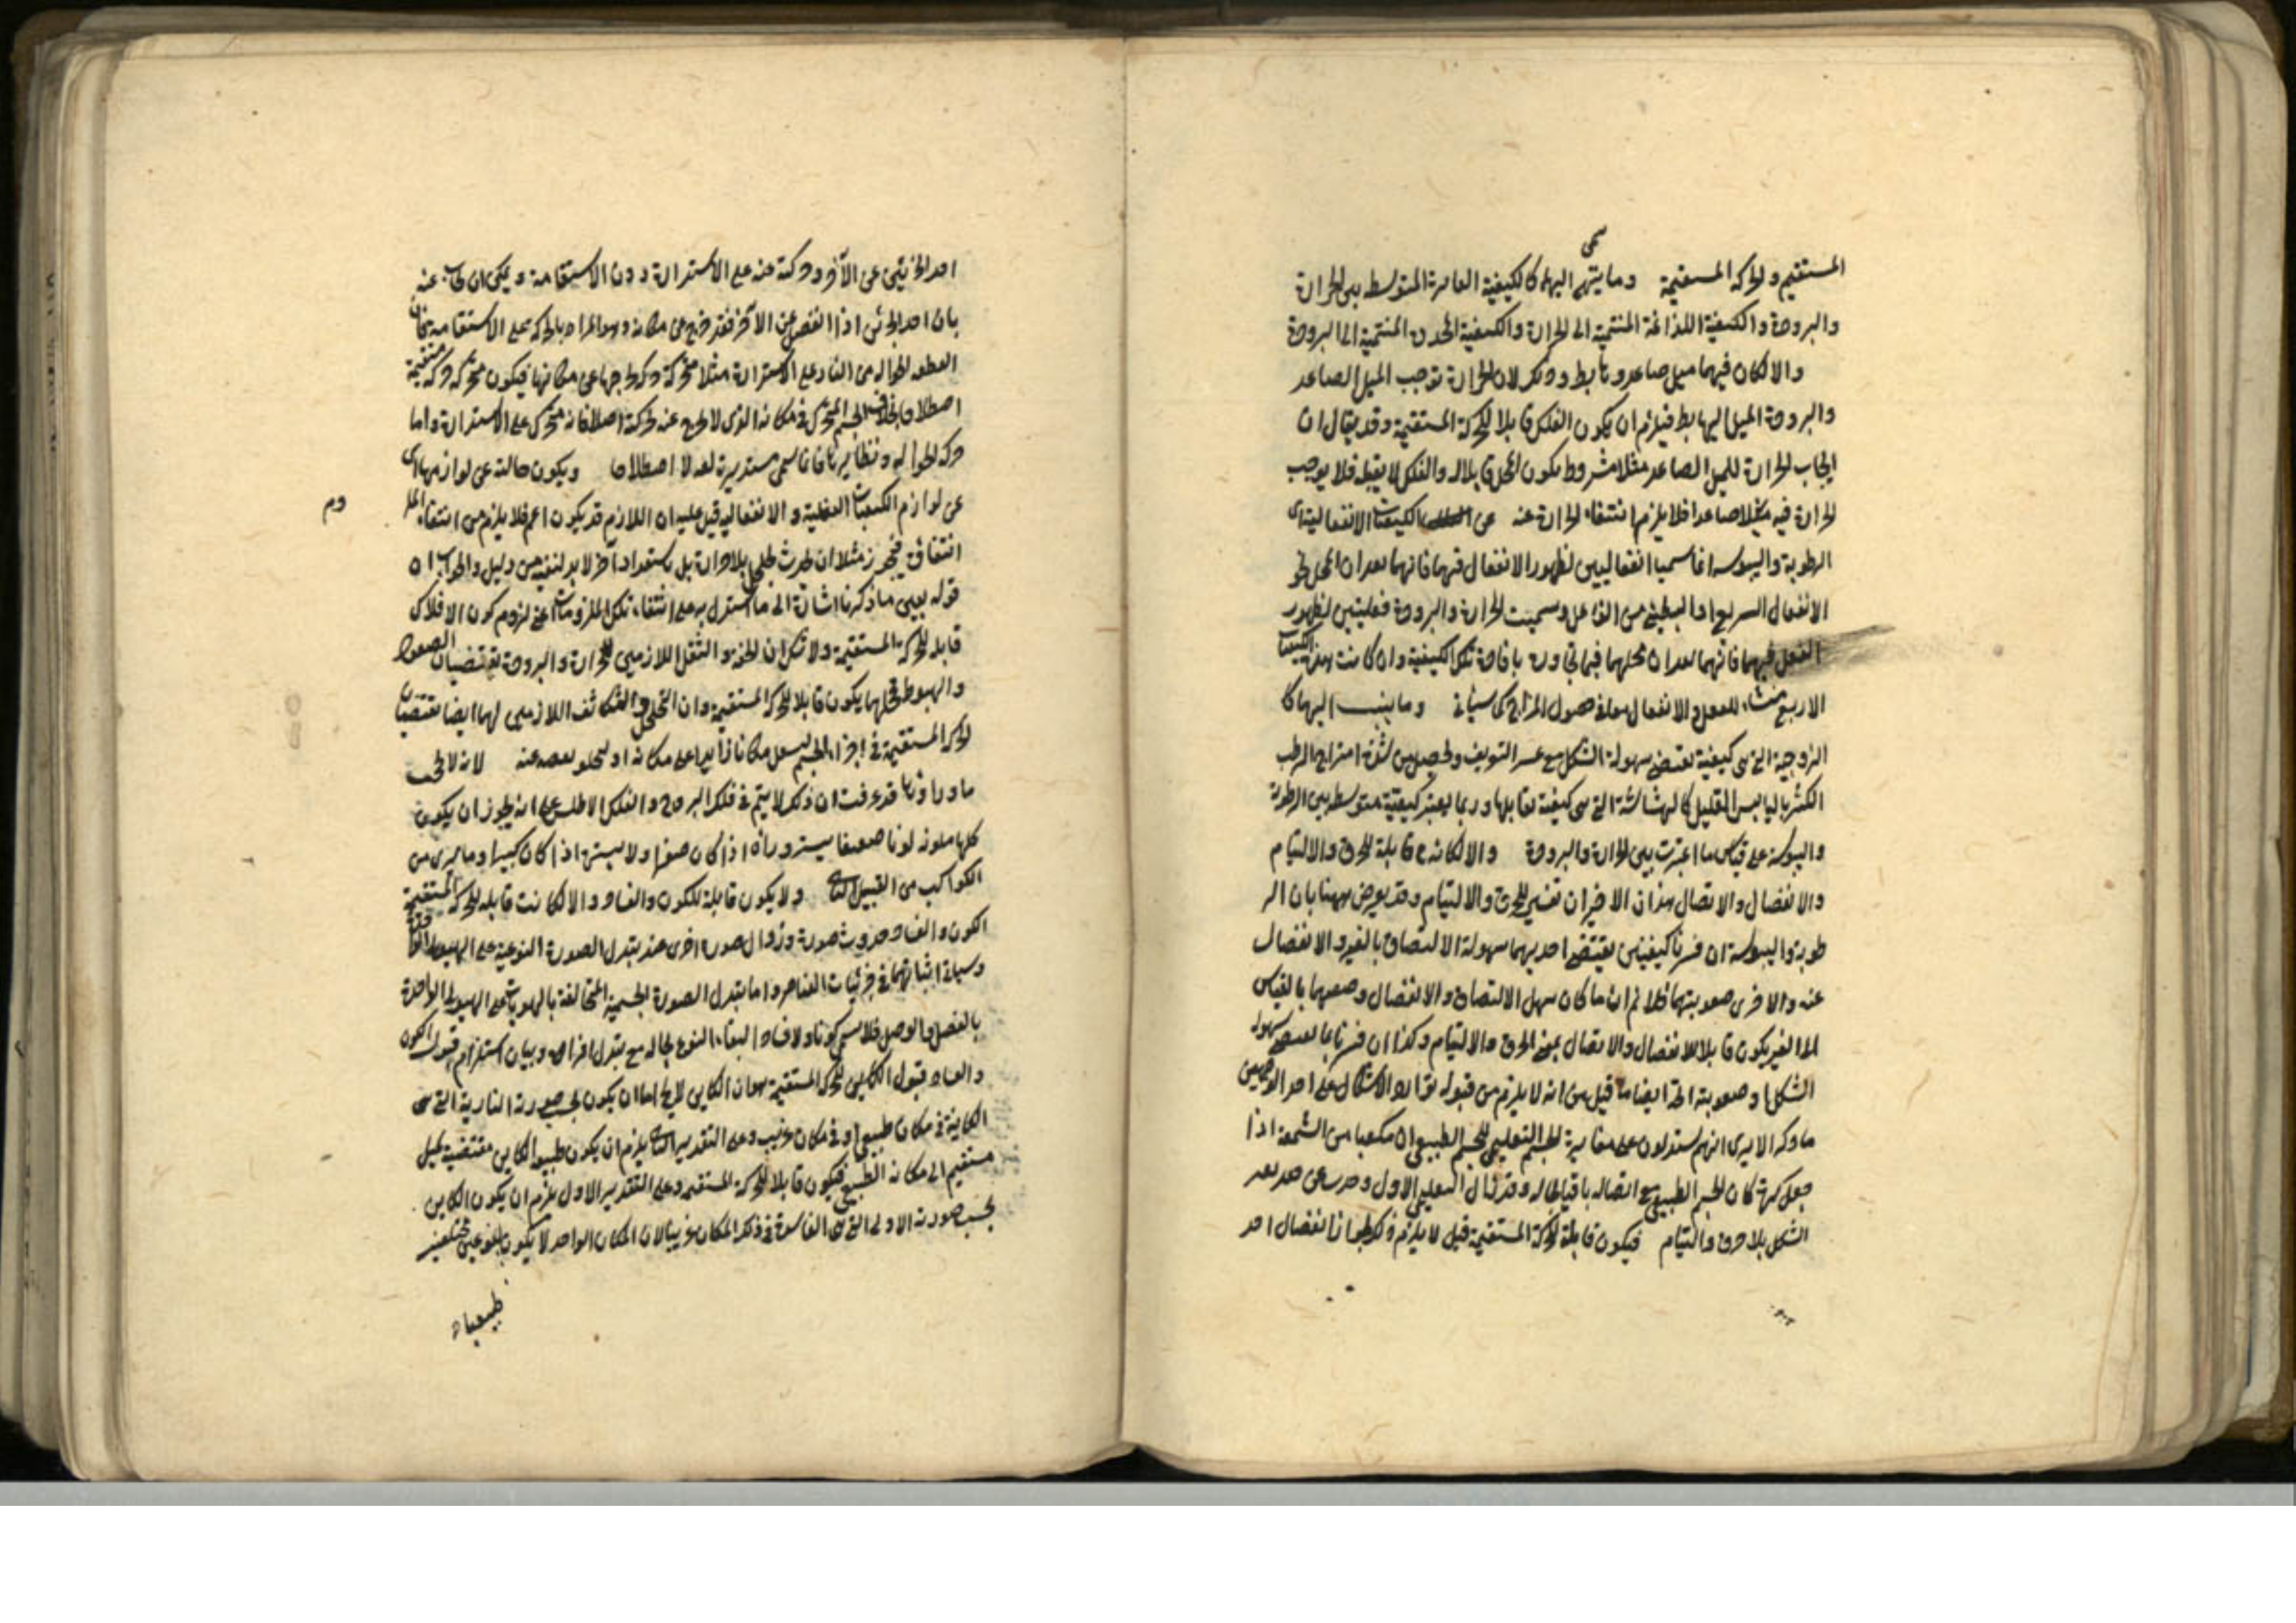 المستقيم والحركة المستقيمة وما ينتهي اليهما كالكيفية الفاترة المتوسطة بين الحرارة
والبرودة والكيفية اللذاعة المنتمية الى الحرارة والكيفية المخدرة المنتمية الى البرودة
والا لكان فيهما ميل صاعد وهابط وذلك لان الحرارة توجب الميل الصاعد
والبرودة الميل الهابط فيلزم ان يكون الفلك قابلا للحركة المستقيمة وقد يقال ان
ايجاب الحرارة للميل الصاعد مثلا مشروط بكون المحل قابلا له والفلك لا يقبله فلا يوجب
الحرارة فيه ميلا صاعدا فلا يلزم انتفاء الحرارة عنه عن الكيفيات الانفعالية اى
الرطوبة واليبوسة انما سميا انفعاليين لظهور الانفعال فيهما فانهما يعدان المحل نحو
الانفعال السريع او البطيئ من الفاعل وسميت الحرارة والبرودة فعليتين لظهور
الفعل فيهما فانهما يعدان محلهما فيما تجاوره بافادة تلك الكيفية وان كانت هذه الكيفيات
الاربع منشاء للفعل والانفعال معا في حصول المزاج كما سياتى وما ينسب اليهما كا
الزوجية التى هى كيفية تقتضى سهولة الشكل مع عسر التفريق ويحصل من شدة امتزاج الرطب
الكثير باليابس القليل كالهشاشة التى هى كيفية تقابلها وربما يعتبر كيفية متوسطة بين الرطوبة
واليبوسة على قياس ما اعتبرت بين الحرارة والبرودة والا لكانت قابلة للخرق والالتيام
والانفصال والاتصال هذان الاخيران تفسير للخرق والالتيام وقد يعرض ههنا بان الر
طوبة واليبوسة ان فسرتا بكيفيتين يقتضى احديهما سهولة الالتصاق بالغير والانفصال
عنه والاخرى صعوبتهما فلا نم ان ما كان سهل الالتصاق والانفصال وصعبهما بالقياس
الى الغير يكون قابلا للانفصال والاتصال بمعنى الخرق والالتيام وكذا ان فسرتا بما يقتضى سهولة
الشكل وصعوبته اذ ايضا ما قيل من انه لا يلزم من قبوله توارد الاشكال على احد الوجهين
ما ذكر الا يرى انهم يستدلون على مغايرة الجسم التعليمى للجسم الطبيعى ان مكعبا من الشمعة اذا
جعل كرة كان الجسم الطبيعى مع اتصاله باقيا بحاله وقد زال التعليمى الاول وحدث عن حد بعد
الشكل بلا خرق والتيام فيكون قابلة للحركة المستقيمة قيل لا يلزم ذلك لجواز انفصال احد
احد الجزئين عن الآخر وحركته عنه على الاستدارة دون الاستقامة ويمكن ان يجاب عنه
بان احد الجزئين اذا انفصل عن الآخر فقد خرج عن مكانه وهو المراد بالحركة على الاستقامة فان
القطعة الجوالة من النار على الاستدارة مثلا متحركة حركة خارجها عن مكانها فيكون متحركة حركة مستقيمة
اصطلاحا بخلاف الجسم المتحرك في مكانه الذى لا يخرج عنه بحركة اصلا فانه متحرك على الاستدارة واما
حركة الجوالة ونظايرها فانما سمى مستديرة لغة لا اصطلاحا ويكون خالية عن لوازمها اى
عن لوازم الكيفيات الفعلية والانفعالية قيل عليه ان اللازم قد يكون اعم فلا يلزم من انتفاء الملزوم
انتفاؤه فيجوز مثلا ان يحدث تخلخل بلا حرارة بل باستعداد آخر لا بد لنفيه من دليل والجواب ان
قوله يعنى ما ذكرنا اشارة الى ما استدل به على انتفاء تلك الملزومات اعنى لزوم كون الافلاك
قابلة للحركة المستقيمة ولا شك ان الخفة والثقل اللازمين للحرارة والبرودة يقتضيان الصعود
والهبوط فمحلهما يكون قابلا للحركة المستقيمة وان التخلخل والتكاثف اللازمين لهما ايضا يقتضيان
الحركة المستقيمة في اجزاء الجسم ليشغل مكانا زايدا على مكانه او يخلو بعضه عنه لانه لا يحجب
ما وراءها قد عرفت ان ذلك لا يتم في فلك البروج والفلك الاطلس على انه يجوز ان يكون
كلها ملونة لونا ضعيفا يستر وراءه اذا كان صغيرا ولا يستر اذا كان كبيرا وما يرى من
الكواكب من القبيل الثانى ولا يكون قابلة للكون والفساد والا لكانت قابلة للحركة المستقيمة
الكون والفساد حدوث صورة وزوال صورة اخرى عند تبدل الصورة النوعية على الهيولى الواحدة
وسياتى اثباتهما في جزئيات العناصر واما تبدل الصورة الجسمية المتخالفة بالهويات على الهيولى الواحدة
بالفصل والوصل فلا يسمى كونا ولا فسادا لبقاء النوع بحاله مع تبدل افراده وبيان استلزام قبول الكون
والفساد قبول الكاين للحركة المستقيمة هو ان الكاين لا يخ اما ان يكون بحسب صورته الثانية التى هى
الكاينة في مكان طبيعى او في مكان غريب وعلى التقدير الثانى يلزم ان يكون طبيعة الكاين مقتضية لميل
مستقيم الى مكانه الطبيعى فيكون قابلا للحركة المستقيمة وعلى التقدير الاول يلزم ان يكون الكاين
بحسب صورته الاولى التى هى الفاسدة في ذلك المكان غريبا لان المكان الواحد لا يكون لنوعين مختلفين
طبيعيا